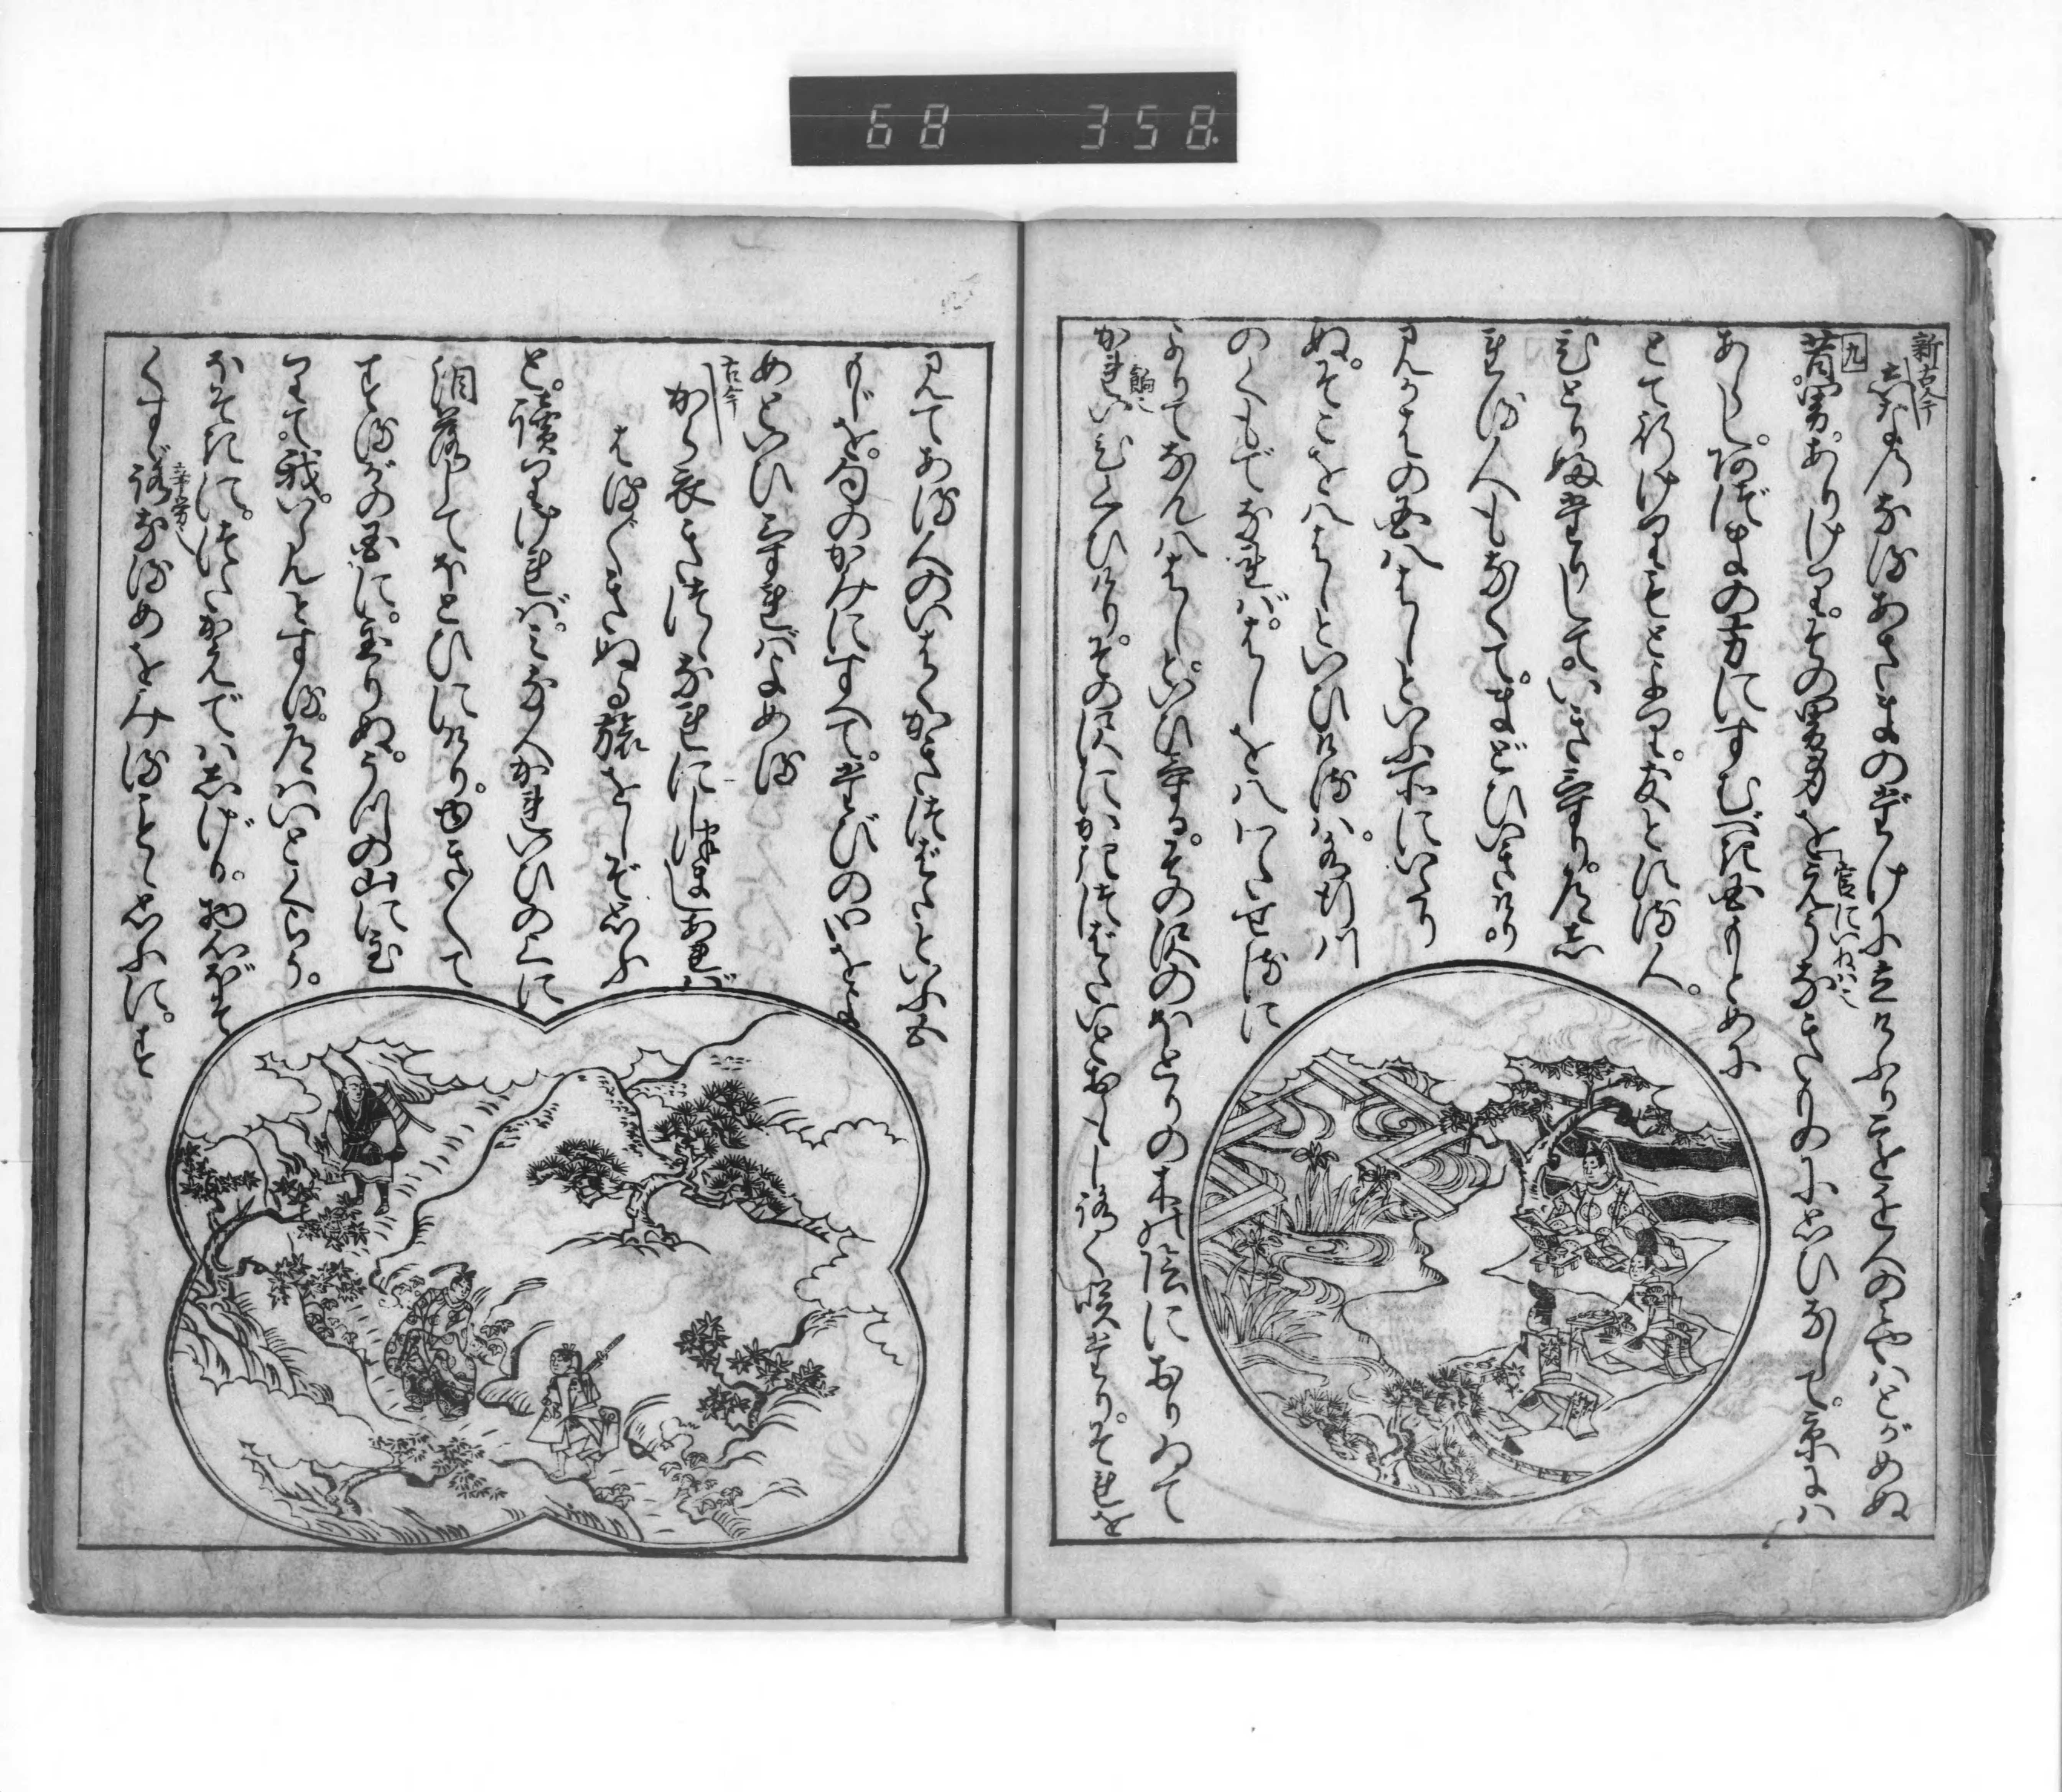 68 358
新古今
しなのなるあさまのだけに立けふりをちこち人のみやはとがめぬ
九
昔。男。ありけり。その男身をえうなきものに思ひなして。京には
官にいねいこ
あらじ。あづまの方にすむべき国もとめに
とて行けりもとより。友とする人。
ひとり婦たりして。いきけり。道し
れる人もなくて。まどひいきけり
みかはの国八はしといふ所にいたり
ぬ。そこを八はしといひけるは。水行川
のくもでなれば。はしを八つわたせるに
よりてなん八はしと。いひける。その沢のほとりの木の陰におりゐて
餉こ
かれいひくひけり。その沢にかきつばたいとおもしろく咲たり。それを
見てある人のいはくかきつばたといふ五
もじを。句のかみにすへて。たびの心をよ
めといひければよめる
古今
から衣きつゝなれにしつましあれば
はる〲きぬる旅をしぞ思ふ
と。読りければ。みな人かれいひの上に
泪落してほとひにけり。ゆき〱て
するがの国に。至りぬ。うつの山に至
りて。我。いらんとする。道はいとくらう。
ほそきに。つたかえでは。しげり。物心ぼそく
辛労
すゞろなるめをみることゝ思ふに。す